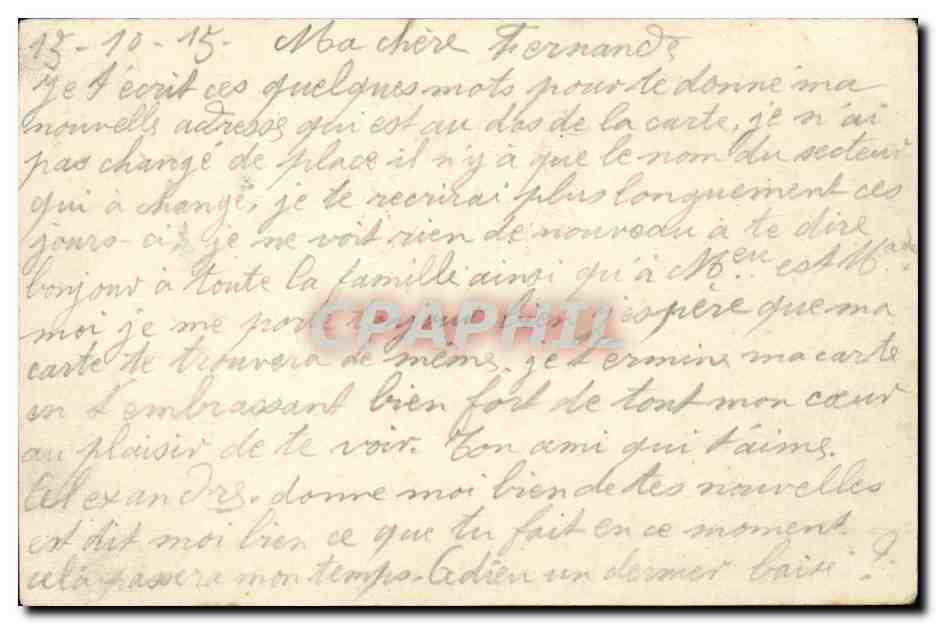 15-10-15- Ma chère Fernande
je t'écrit ces quelques mots pour te donné ma
nouvelle adresse qui est au dos de la carte, je n'ai
pas changé de place il n'y à que le nom du secteur
qui à changé, je te recrirai plus longuement ces
jours-ci, je ne voit rien de nouveau a te dire
bonjour à toute la famille ainsi qu'à Meu est Made
moi je me porte toujour bien j'espère que ma
carte te trouvera de même, je termine ma carte
en t'embrassant bien fort de tout mon cœur
au plaisir de te voir. Ton ami qui t'aime.
Alexandre. donne moi bien de tes nouvelles
est dit moi bien ce que tu fait en ce moment
cela passera mon temps. Adieu un dernier baisé
CPAPHIL